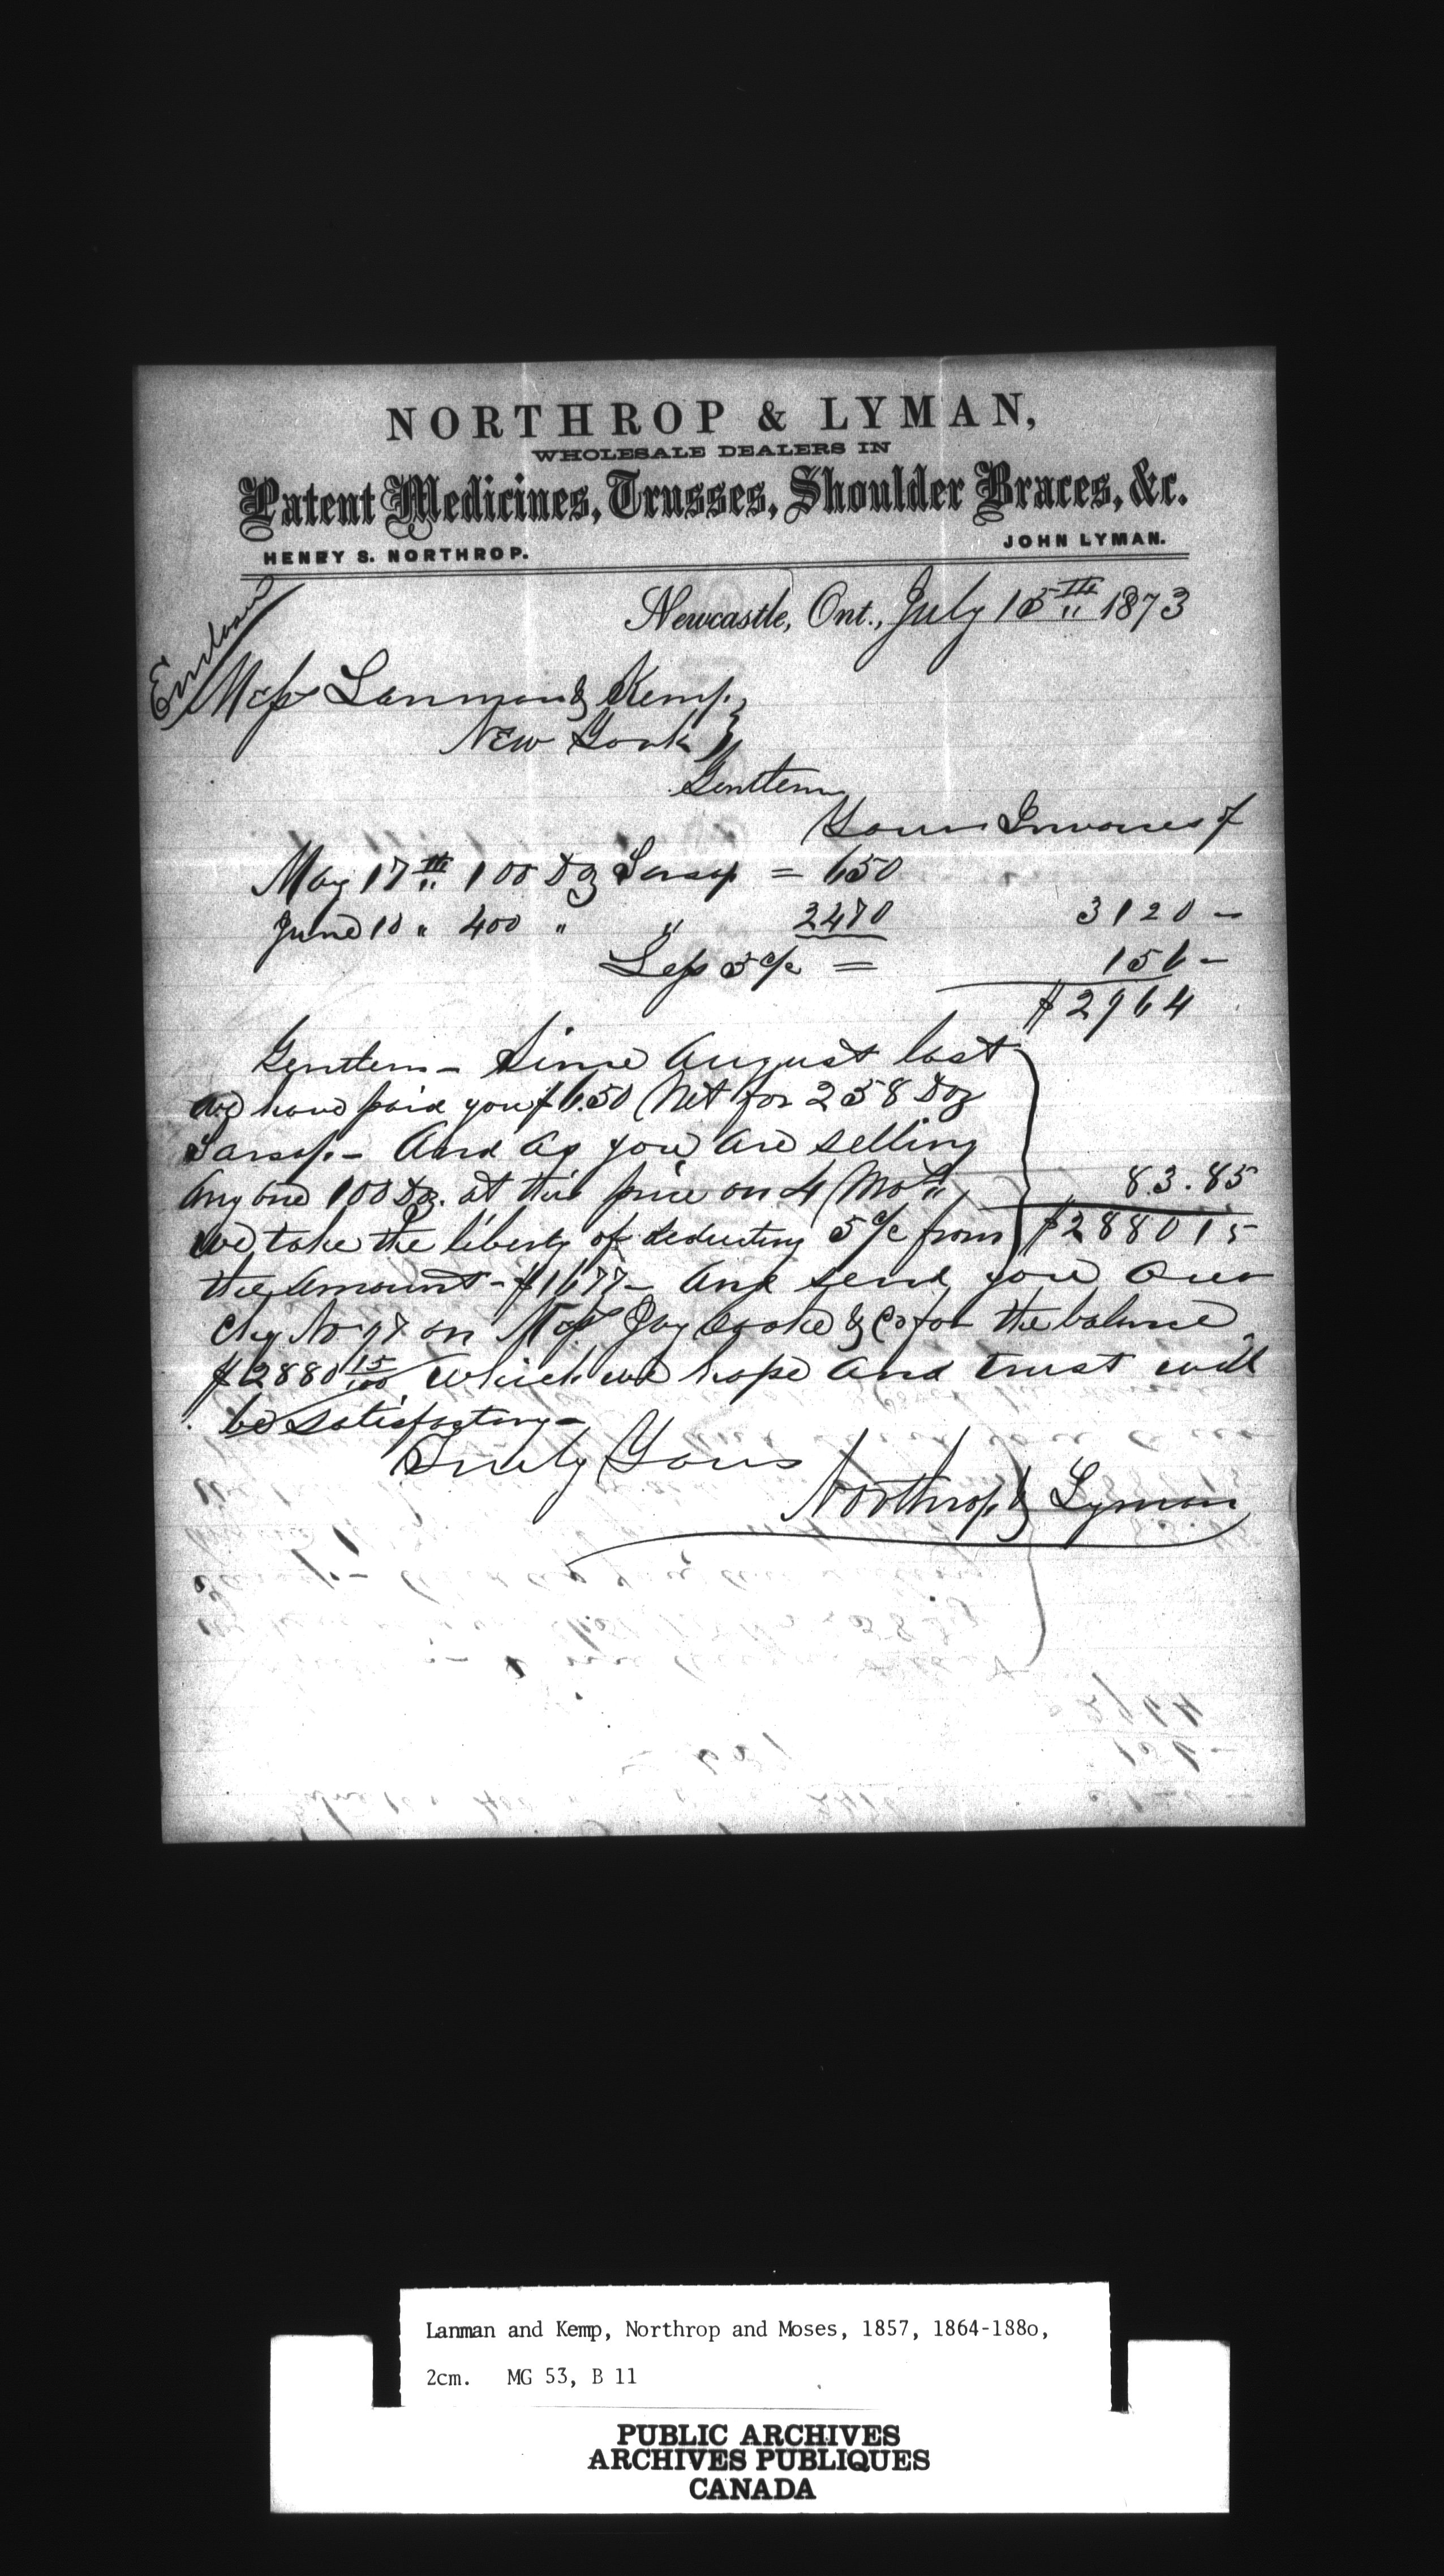 NORTHROP & LYMAN,
WHOLESALE DEALERS IN
Patent Medicines, Trusses, Shoulder Braces, &c.
HENRY S. NORTHROP.
JOHN LYMAN.
Newcastle, Ont., July 15th 1873
Endorsed
Mess Lanman & Kemp
New York
Gentlem
Your Invoices of
May 17th 100 Dz Sarsap = 650
June 10 " 400 " " 2470 3120 -
Less 5 % = 156 -
$2964
Gentlem - Since August last
we have paid you $6.50 Net for 258 Doz
Sarsap. - And as you are selling
any one 100 Dz. at this price on 4 Mos 83.85
we take the liberty of deducting 5 % from $2880 15
the amount - $1677 - and send you our
chq No 97 on Mess Jay Cooke & Co for the balance
$2880 15/100 which we hope and trust will
be satisfactory -
Truly Yours
Northrop & Lyman
Lanman and Kemp, Northrop and Moses, 1857, 1864-188o,
2cm. MG 53, B 11
PUBLIC ARCHIVES
ARCHIVES PUBLIQUES
CANADA